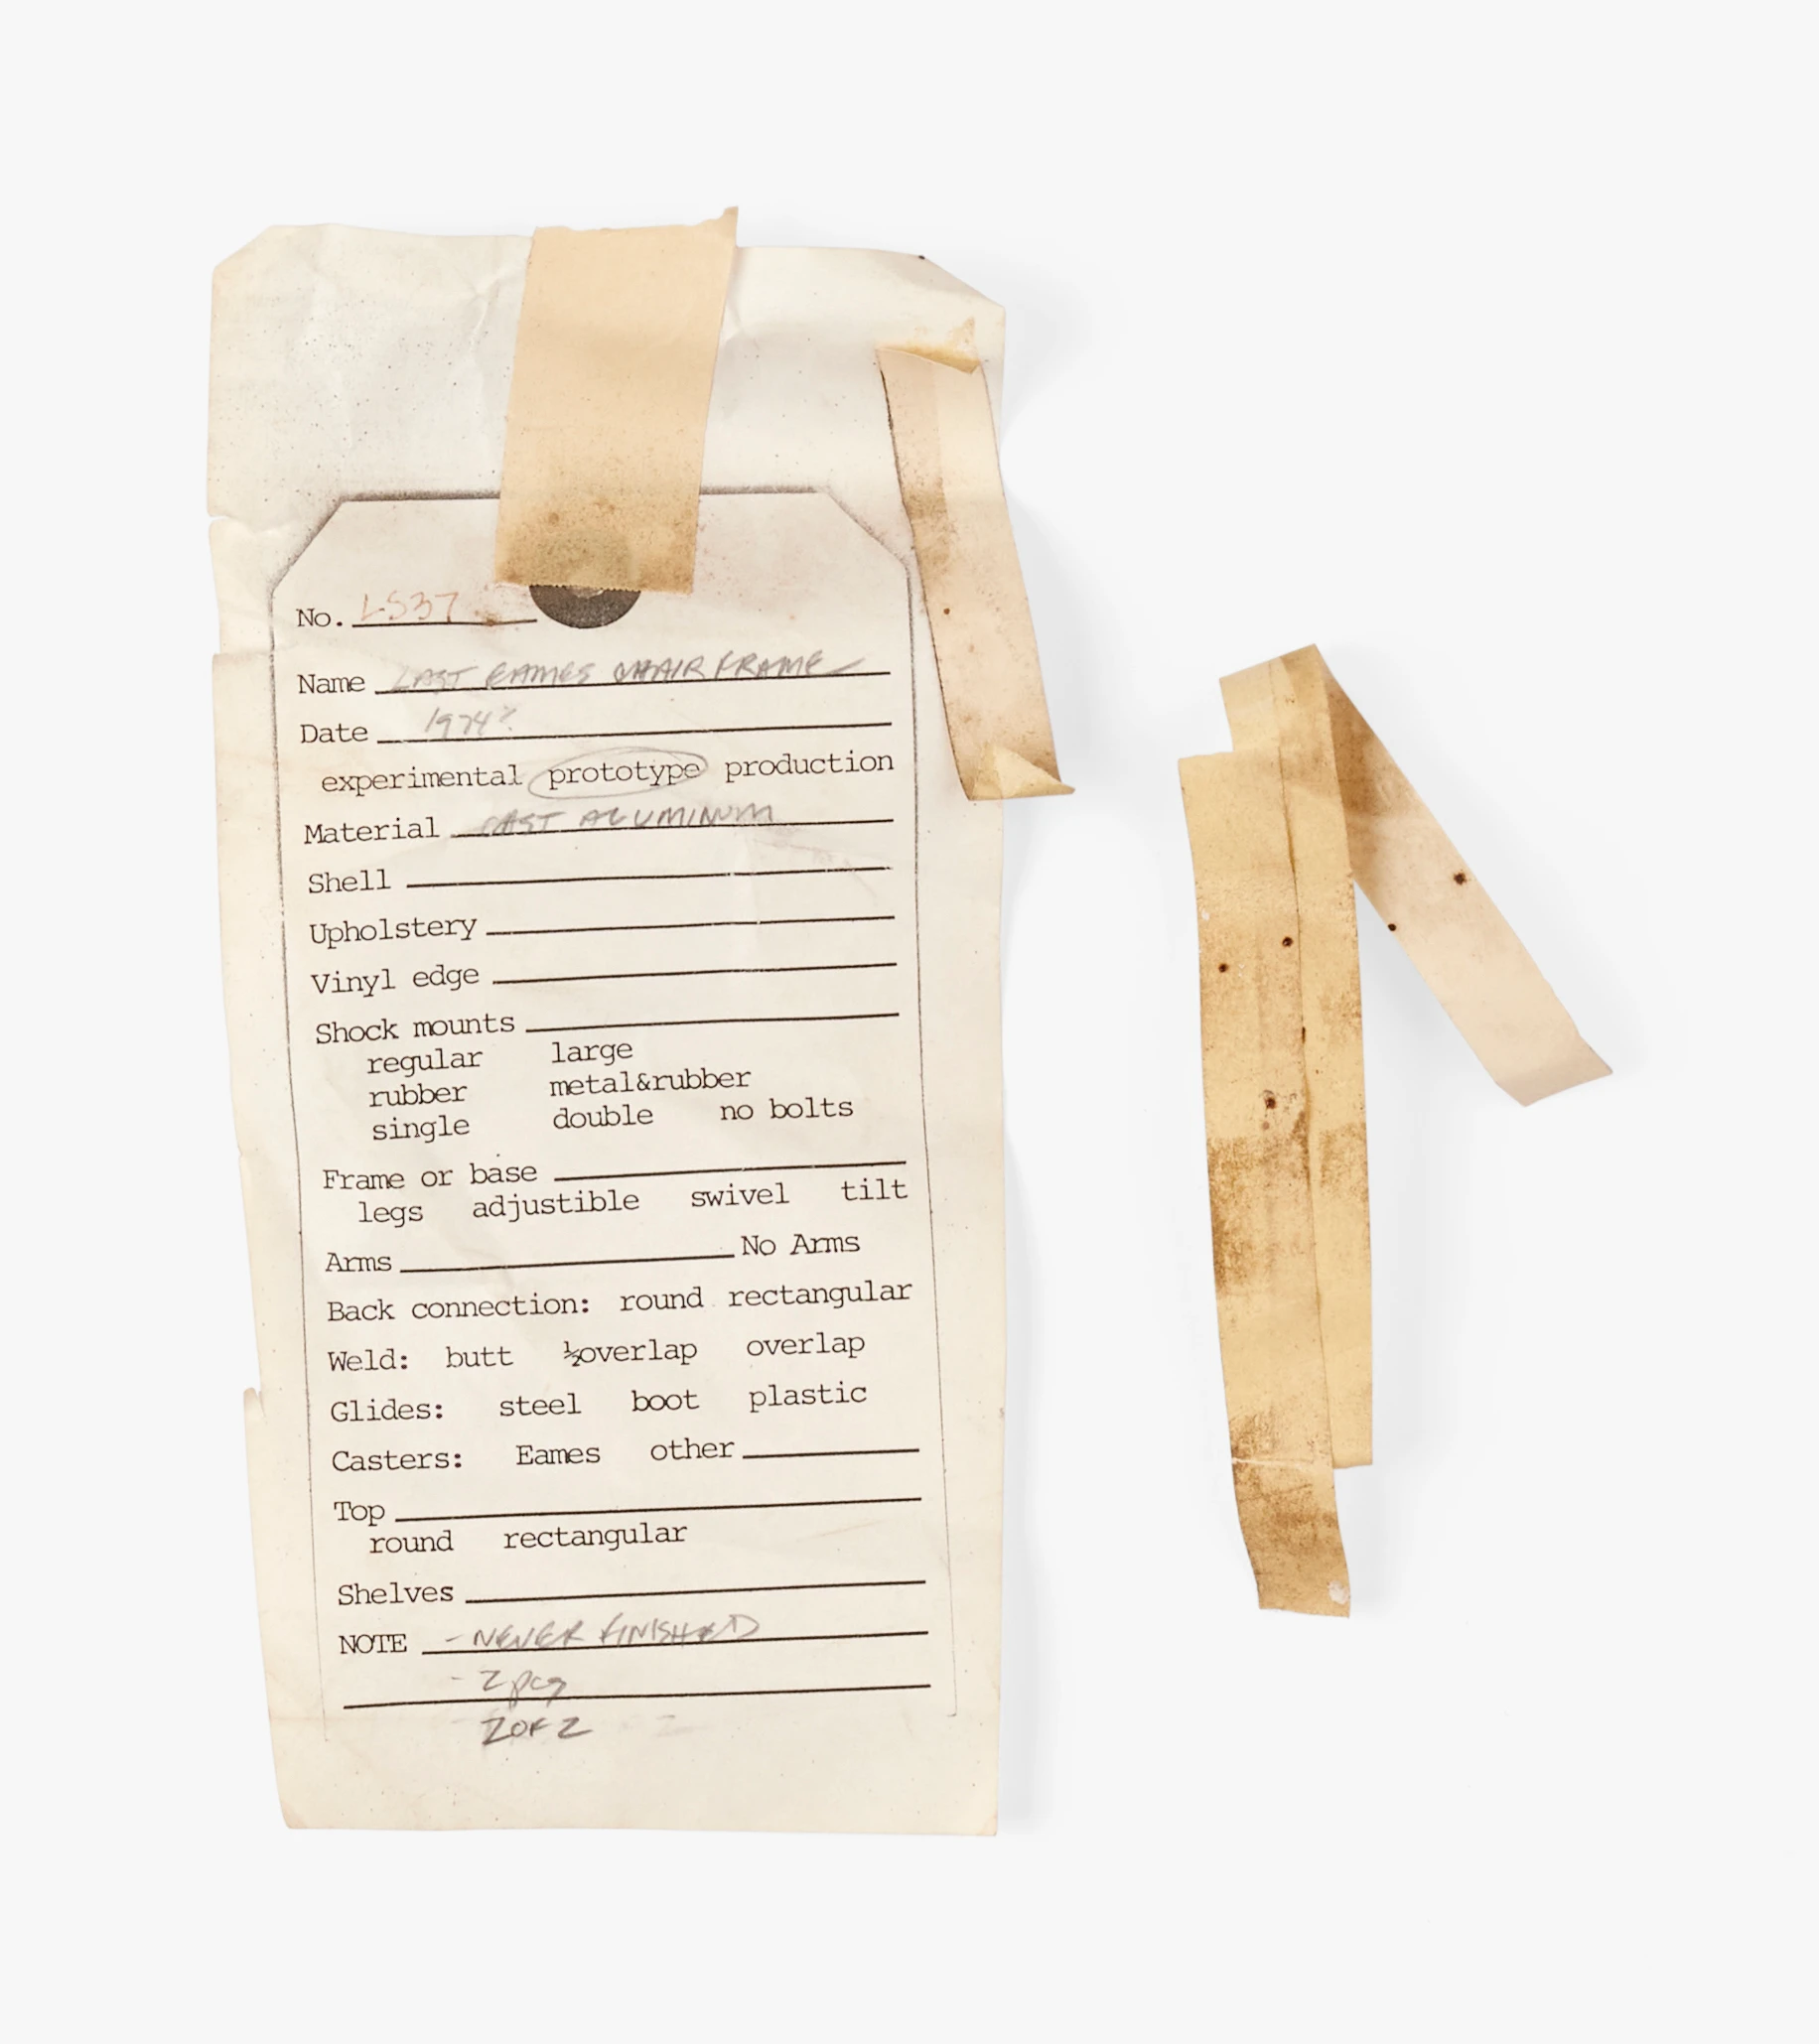 No. LS37
Name LAST EAMES CHAIR FRAME
Date 1974?
experimental prototype production
Material CAST ALUMINUM
Shell
Upholstery
Vinyl edge
Shock mounts
regular large
rubber metal&rubber
single double no bolts
Frame or base
legs adjustible swivel tilt
Arms No Arms
Back connection: round rectangular
Weld: butt ½overlap overlap
Glides: steel boot plastic
Casters: Eames other
Top
round rectangular
Shelves
NOTE - NEVER FINISHED
- 2 pcs
2 OF 2